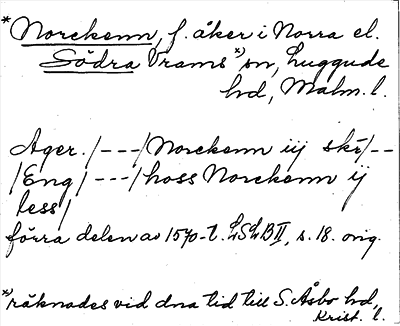 *Norckenn, f. åker i Norra el.
Södra Vrams *) sn, Luggude
hd, Malm. l.
Ager. /---/ Norckenn iij skr /--
/Eng/ ---/ hoss Norckenn ij
less/
förra delen av 1570-t. LSLB II, s. 18. orig.
*) räknades vid dna tid till S. Åsbo hd,
Krist. l.